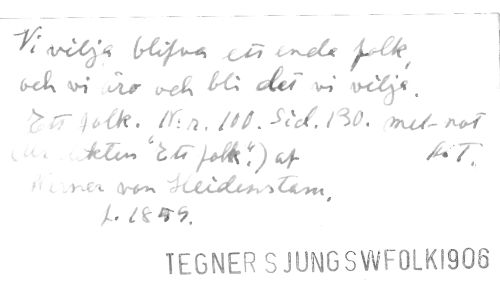 Vi vilja blifva ett enda folk,
och vi äro och bli det vi vilja.
Ett folk. N:r. 100. Sid. 130. met-not
(ur dikten "Ett folk".) af A o T.
Werner von Heidenstam,
f. 1859.
TEGNER SJUNGSWFOLK1906